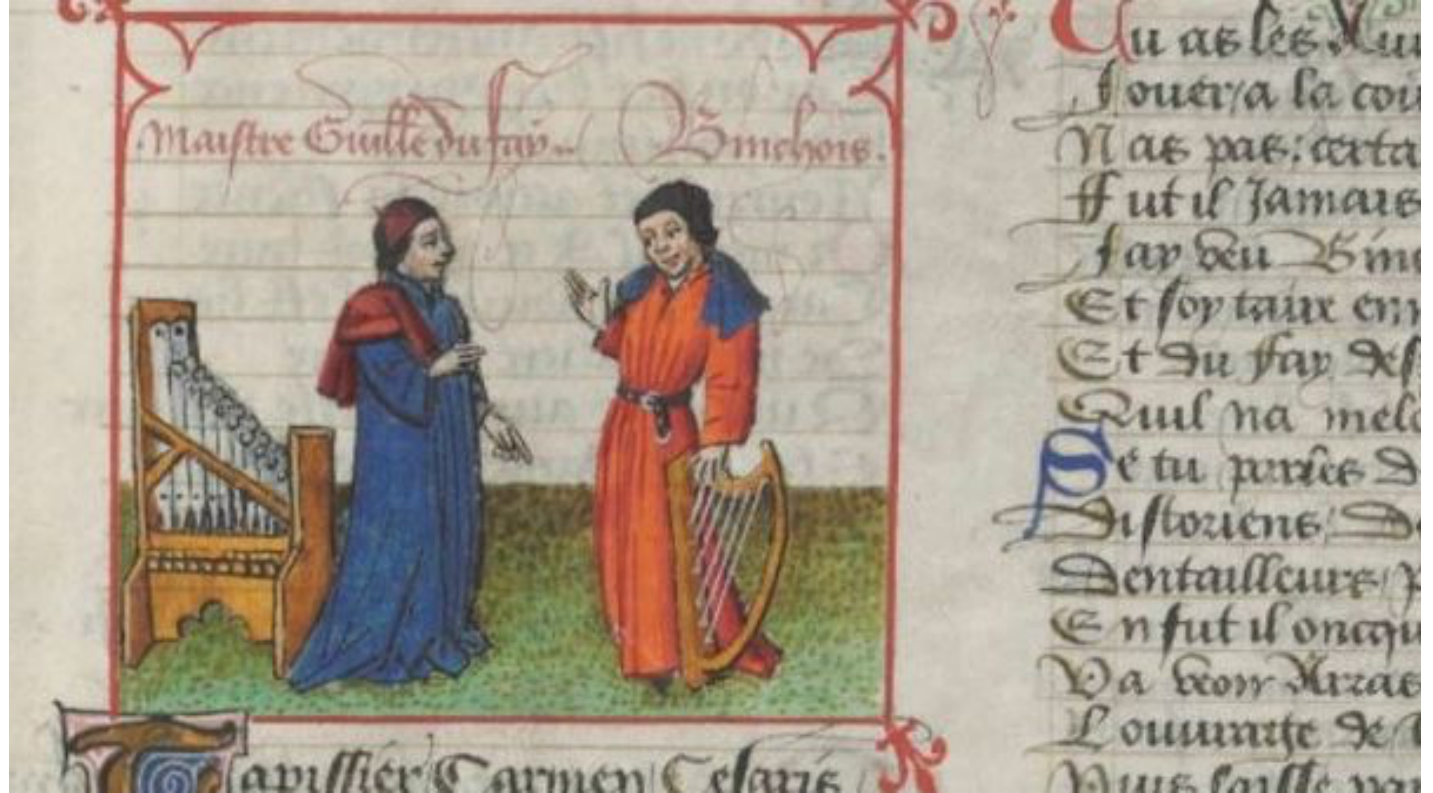 Maistre Guille du fay Binchois.
Tapissier Carmen Cesaris
Tu as les
Jouer a la cou
N as pas: certa
Fut il Jamais
Jay veu Binc
Et soy taire en
Et du fay des
Quil na melo
Se tu parles d
Distoriens d
Dentailleurs p
En fut il oncqu
Va veoir Arras
Louvraige de
Puis laisse par